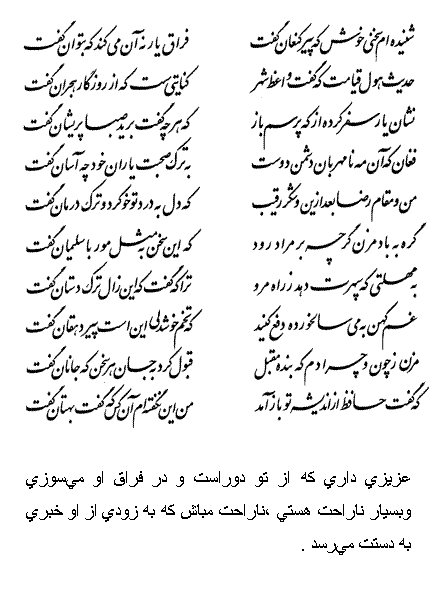 شنیده ام سخنی خوش که پیر کنعان گفت فراق یار نه آن می کند که بتوان گفت
حدیث هول قیامت که گفت واعظ شهر کنایتی ست که از روزگار هجران گفت
نشان یار سفر کرده از که پرسم باز که هر چه گفت برید صبا پریشان گفت
فغان که آن مه نامهربان دشمن دوست به ترک صحبت یاران خود چه آسان گفت
من و مقام رضا بعد ازین و شکر رقیب که دل به درد تو خو کرد و ترک درمان گفت
گره به باد مزن گر چه بر مراد رود که این سخن به مثل مور با سلیمان گفت
به مهلتی که سپهرت دهد ز راه مرو ترا که گفت که این زال ترک دستان گفت
غم کهن به می سالخورده دفع کنید که تخم خوشدلی این است پیر دهقان گفت
مزن ز چون و چرا دم که بنده مقبل قبول کرد به جان هر سخن که جانان گفت
که گفت حافظ از اندیشه تو باز آمد من این نگفته ام آن کس که گفت بهتان گفت
عزيزي داري كه از تو دوراست و در فراق او مي‌سوزي
وبسيار ناراحت هستي ،ناراحت مباش كه به زودي از او خبري
به دستت مي‌رسد .